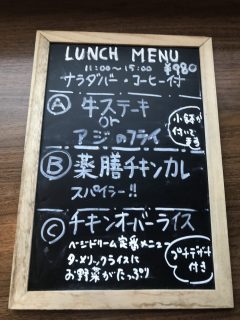 LUNCH MENU
11:00~15:00 ¥980
サラダバー・コーヒー付
Ⓐ 牛ステーキ
or
アジのフライ
小鉢が
付いて
ます
Ⓑ 薬膳チキンカレ
スパイラー!!
Ⓒ チキンオーバーライス
ベジドリーム定番メニュー
ターメリックライスに
お野菜がたっぷり
プチデザート
付き